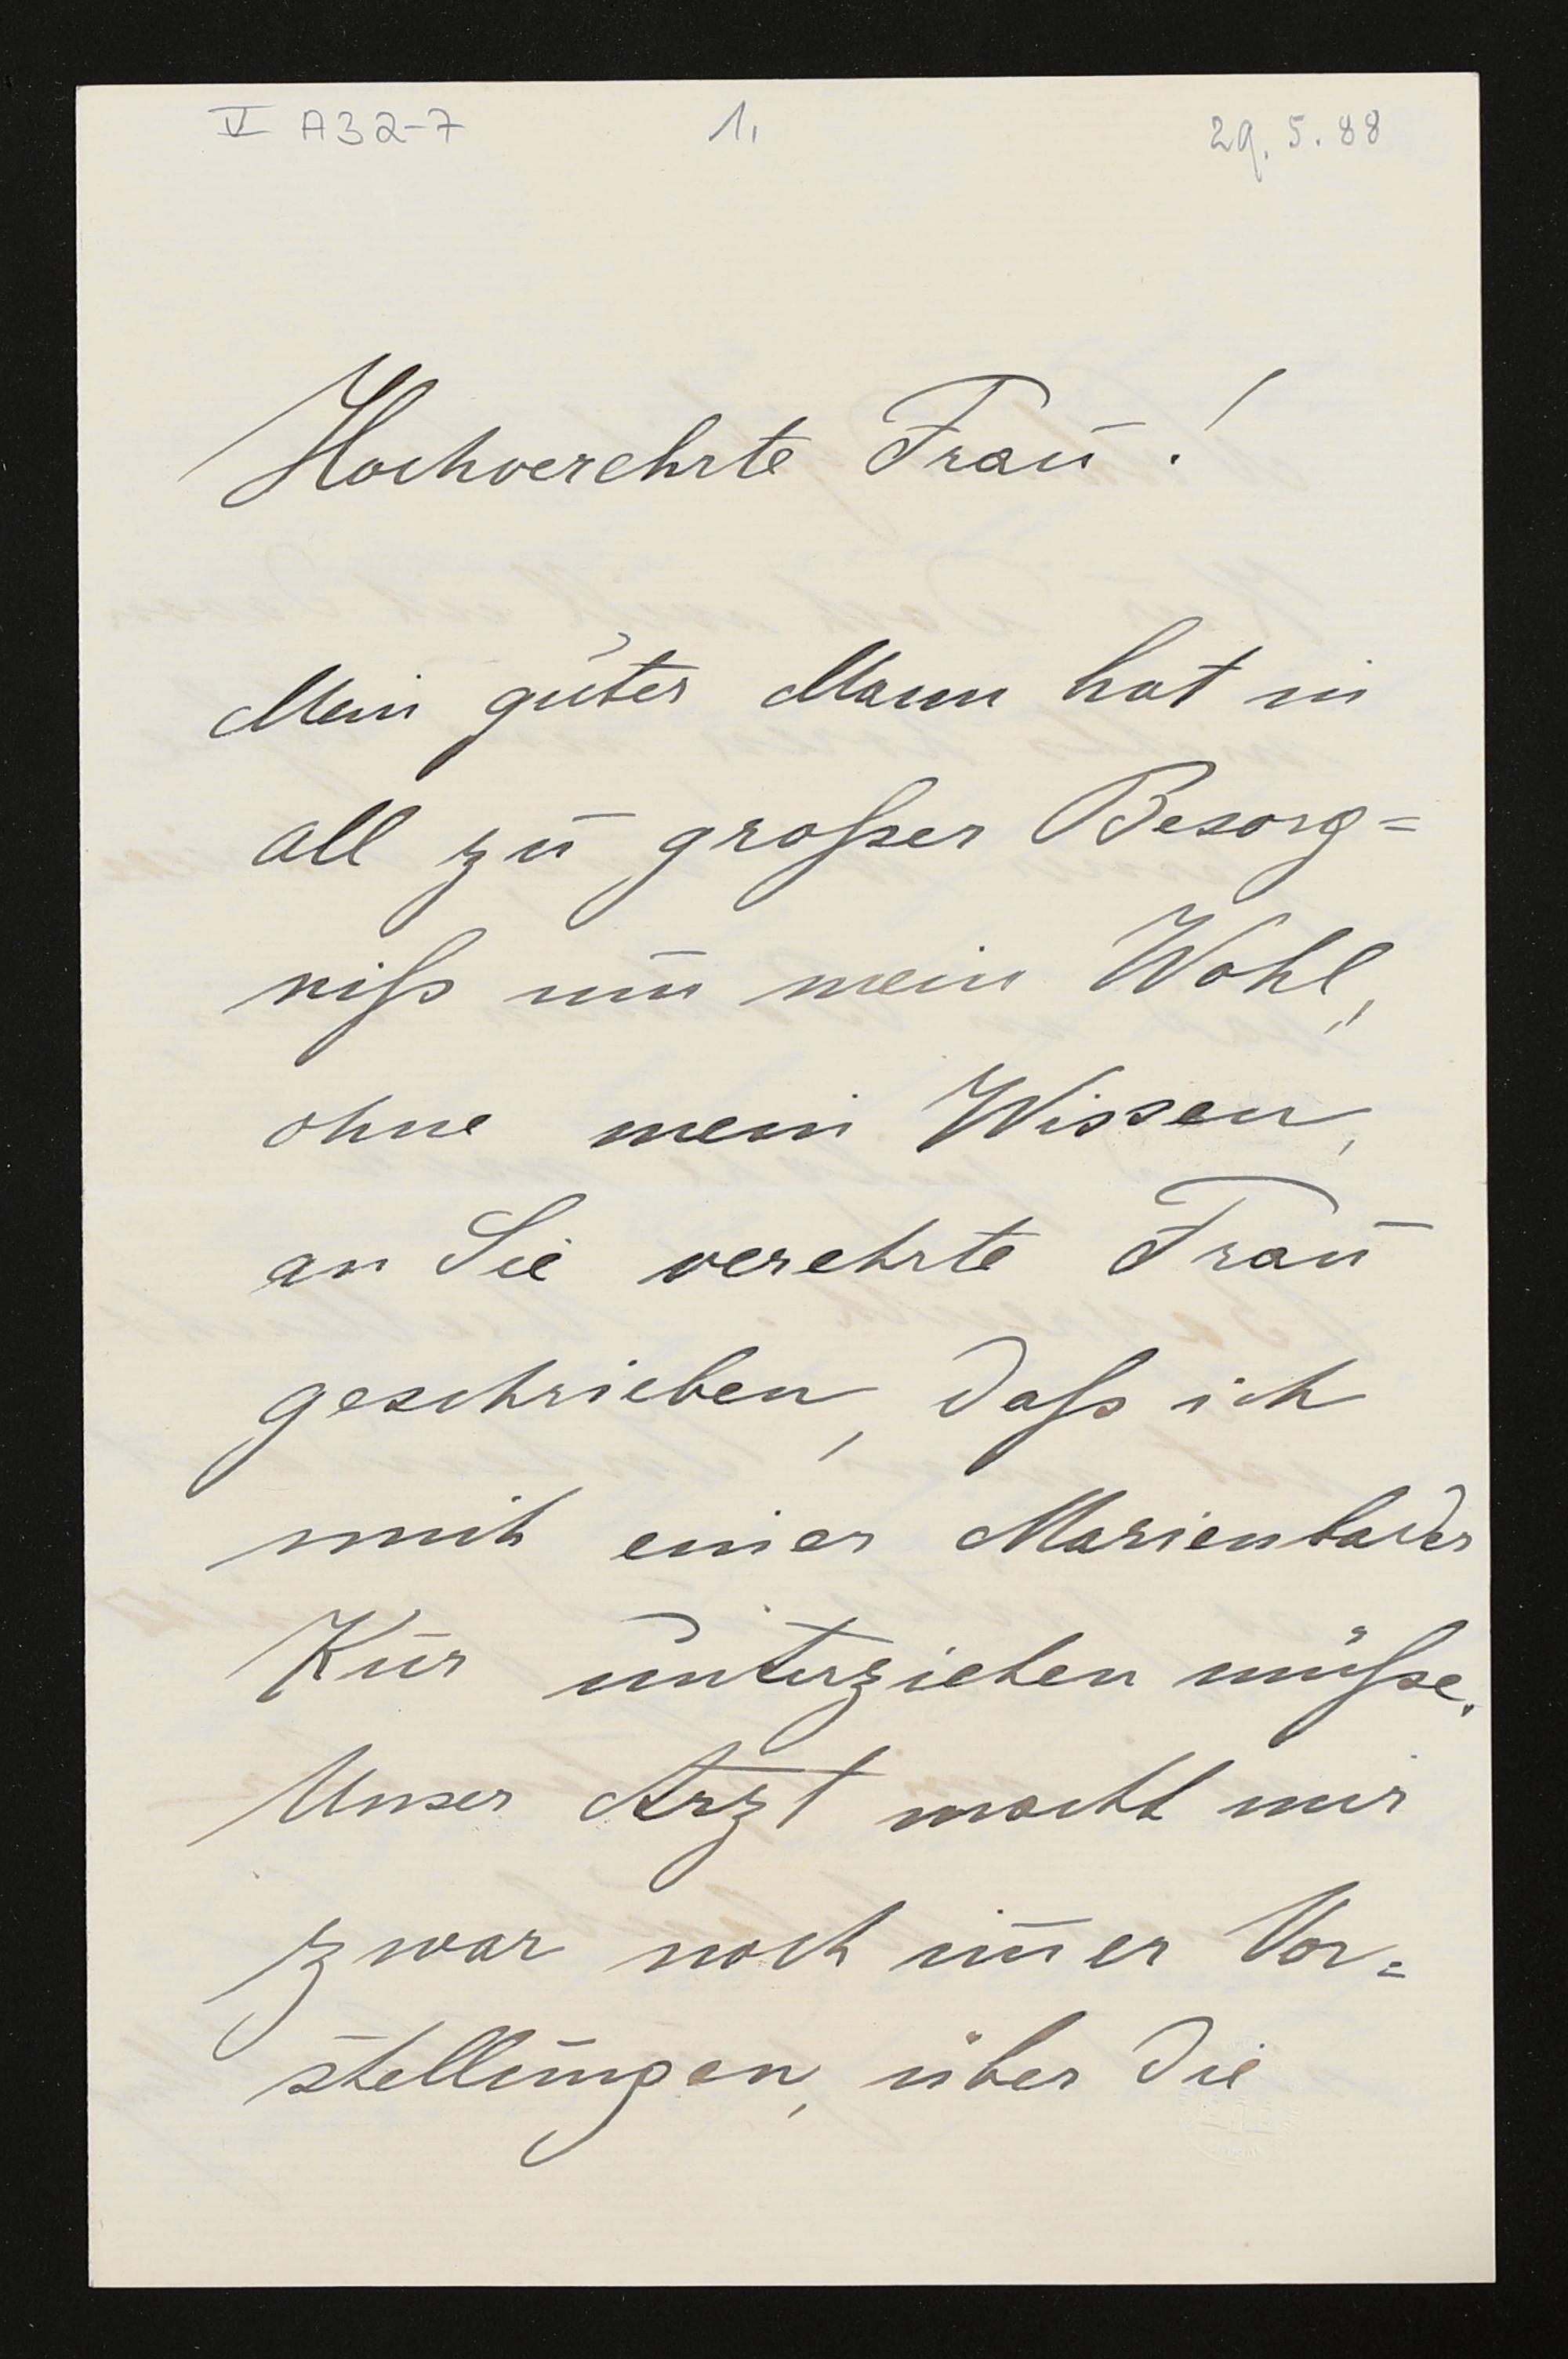 V A32-7 1, 29.5.88
Hochverehrte Frau!
Mein guter Mann hat in
all zu großer Besorg=
niß um mein Wohl,
ohne mein Wissen,
an Sie verehrte Frau
geschrieben, daß ich
mich einer Marienbader
Kur unterziehen müße.
Unser Arzt macht mir
zwar noch im̅er Vor=
stellungen, über die